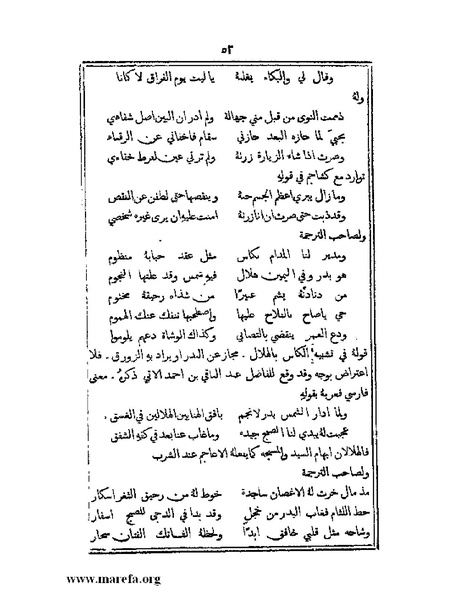 ٥٢
وقال لي والبكاء يغلبهُ يا ليت يوم الفراق لا كانا
ولهُ
ذممت النوى من قبل مني جهالة ولم ادر ان البين اصل شفاءي
بحبي لما حازه البعد حازني سقام فاخفاني عن الرقباء
وصرت اذا شاء الزيارة زرتهُ ولم ترني عين لفرط خفاءي
توارد مع كشاجم في قولهِ
وما زال يبري اعظم الجسم حبهُ وينقصها حتى لطفن عن النقص
وقد ذبت حتى صرت ان انا زرتهُ امنت عليهِ ان يرى غيره شخصي
ولصاحب الترجمة
ومدير لنا المدام بكاس مثل عقد حبابهُ منظوم
هو بدر وفي اليمين هلال فيهِ شمس وقد علتها النجوم
من دنانهِ يشم عبيرًا من شذاه رحيقهُ مختوم
حي يا صاح بالفلاح عليها واصطحبها تنفك عنك الهموم
ودع العمر ينقضي بالتصابي وكذاك الوشاة دعهم يلوموا
قوله في تشبيه الكاس بالهلال . مجاز عن البدر او يراد به الزورق . فلا
اعتراض بوجه وقد وقع للفاضل عبد الباقي بن احمد الاتي ذكرهُ . معنى
فارسي فعربهُ بقولهِ
ولما ادار الشمس بدر لانجم بافق الهنا بين الهلالين في الغسق .
عجبت لهُ يبدي لنا الصبح جيدهُ وما غاب عنا بعد في كفهِ الشفق
فالهلالان ابهام السيد والمسبحه كما يفعلهُ الاعاجم عند الشرب
ولصاحب الترجمة
مذ مال خرت لهُ الاغصان ساجدة خوط لهُ من رحيق الثغر اسكار
حط اللثام فغاب البدر من خجل وقد بدا في الدجى للصبح اسفار
وشاحه مثل قلبي خافق ابدًا ولحظهُ الفاتك الفتان سحار
www.marefa.org